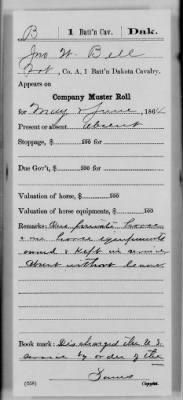 B 1 Batt'n Cav. Dak.
Jno W. Bell
Co. A, 1 Batt'n Dakota Cavalry.
Appears on
Company Muster Roll
for May & June, 1864
Present or absent Absent
Stoppage, $ 100 for
Due Gov't, $ 100 for
Valuation of horse, $ 100
Valuation of horse equipments, $ 100
Remarks: One private horse
& one horse equipments
owned & kept in service
absent without leave
Book mark: Discharged the U.S.
service by order of the
(358) Copyist.